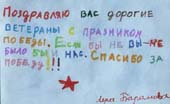 Поздравляю вас дорогие
ветераны с празником
победы. Если бы не вы-не
было бы и нас. Спасибо за
победу!!!
Баранова